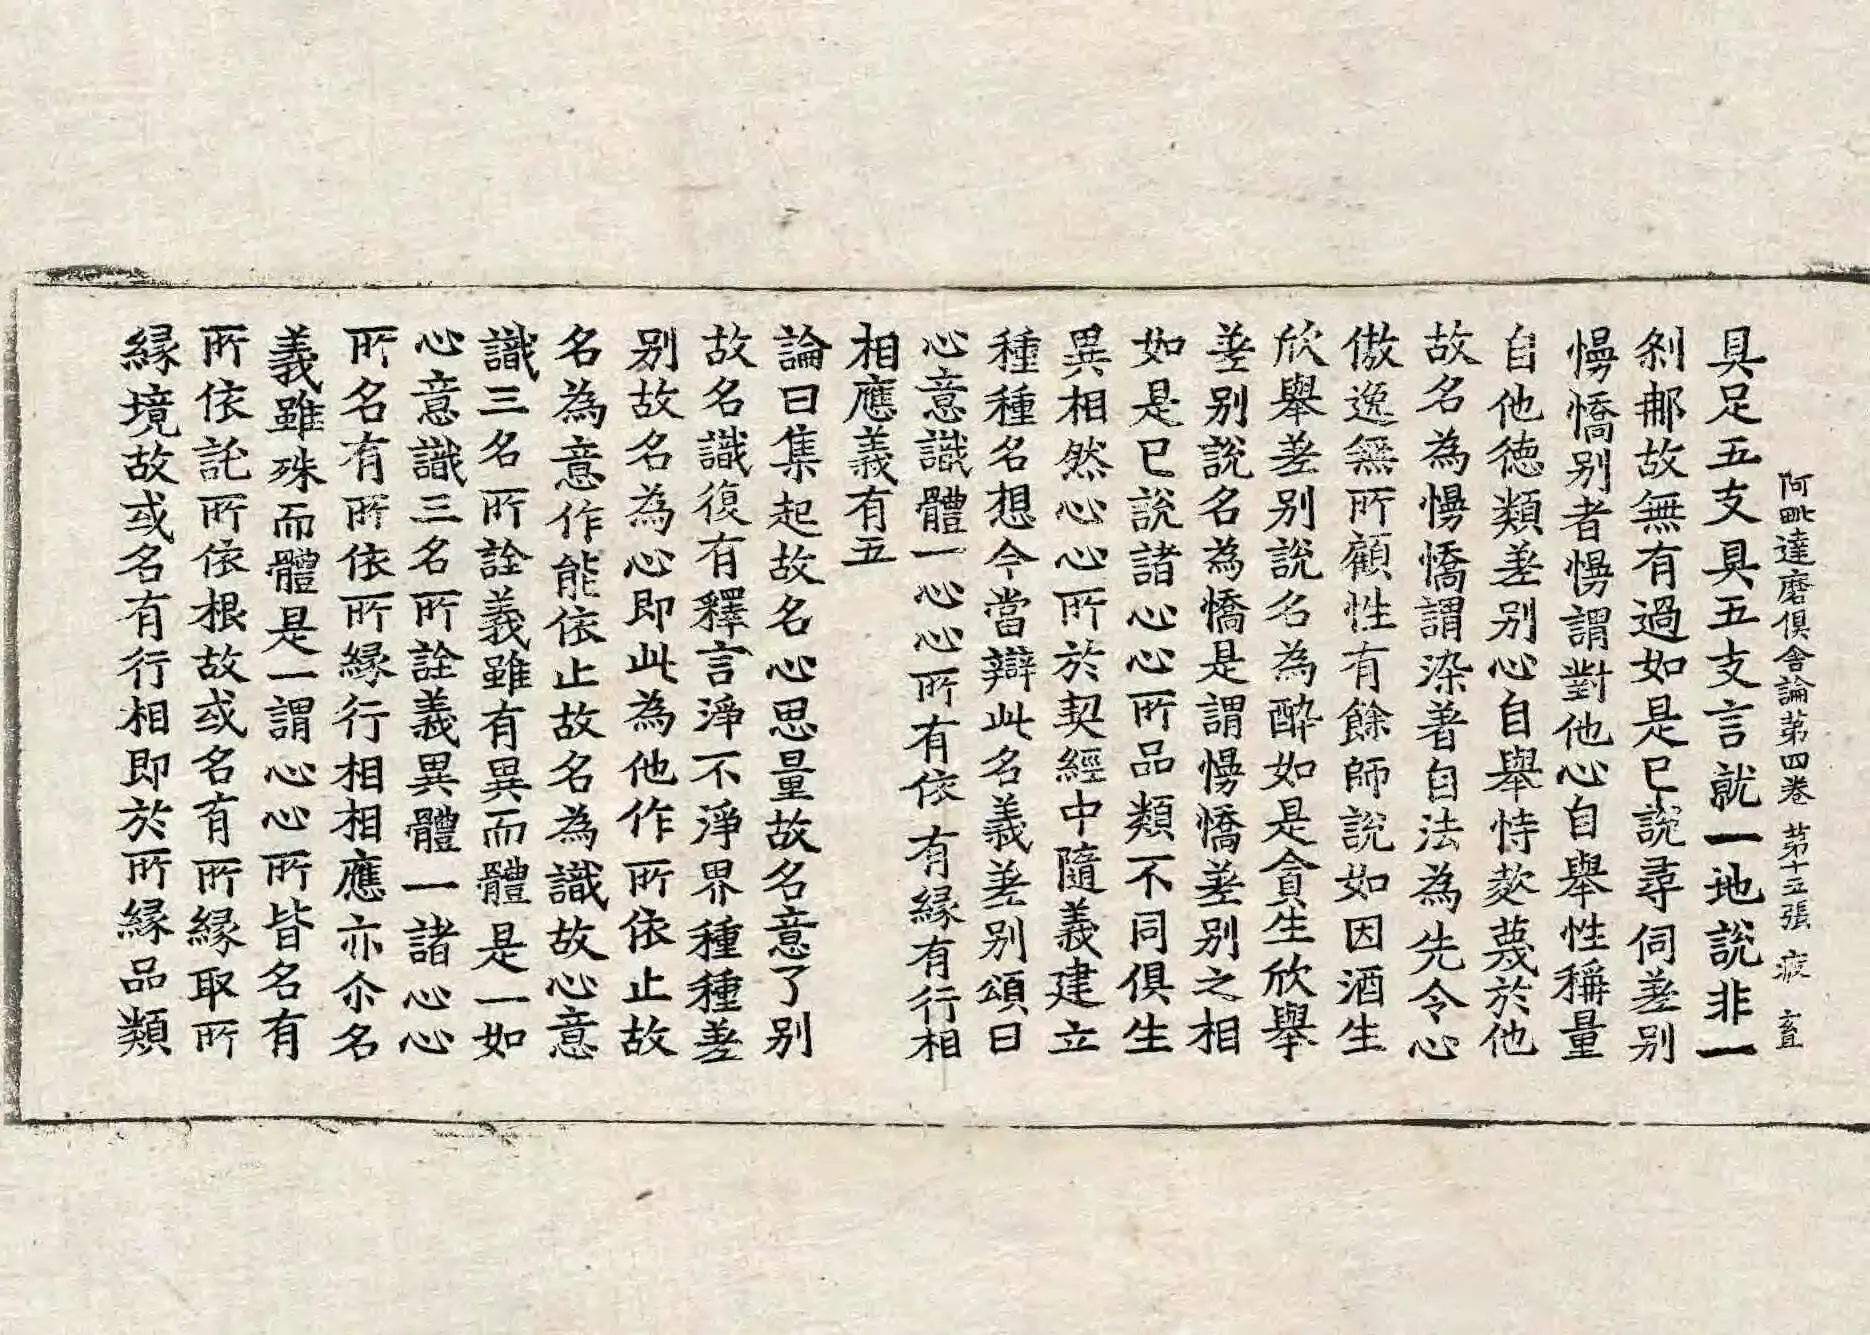 阿毗達磨俱舍論第四卷 第十五張 疲
具足五支具五支言就一地說非一
剎那故無有過如是已說尋伺差別
慢憍別者慢謂對他心自舉性稱量
自他德類差別心自舉恃㰸蔑於他
故名為慢憍謂染著自法為先令心
傲逸無所顧性有餘師說如因酒生
欣舉差別說名為醉如是貪生欣舉
差別說名為憍是謂慢憍差別之相
如是已說諸心心所品類不同俱生
異相然心心所於契經中隨義建立
種種名想今當辯此名義差別頌曰
心意識體一心心所有依有緣有行相
相應義有五
論曰集起故名心思量故名意了別
故名識復有釋言淨不淨界種種差
別故名為心即此為他作所依止故
名為意作能依止故名為識故心意
識三名所詮義雖有異而體是一如
心意識三名所詮義異體一諸心心
所名有所依所緣行相相應亦尒名
義雖殊而體是一謂心心所皆名有
所依託所依根故或名有所緣取所
緣境故或名有行相即於所緣品類